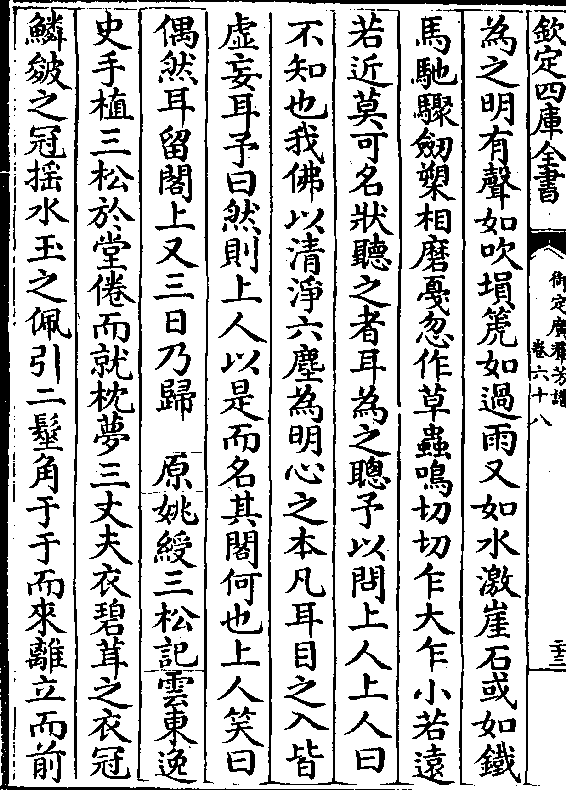 欽定四庫全書
御定廣羣芳譜
卷六十八
二十三
為之明有聲如吹塤箎如過雨又如水激崖石或如鐵
馬馳驟劒槊相磨戞忽作草蟲鳴切切乍大乍小若遠
若近莫可名狀聽之者耳為之聰予以問上人上人曰
不知也我佛以清淨六塵為明心之本凡耳目之入皆
虛妄耳予曰然則上人以是而名其閣何也上人笑曰
偶然耳留閣上又三日乃歸　原姚綬三松記雲東逸
史手植三松於堂倦而就枕夢三丈夫衣碧茸之衣冠
鱗皴之冠揺水玉之佩引二髽角于于而來離立而前